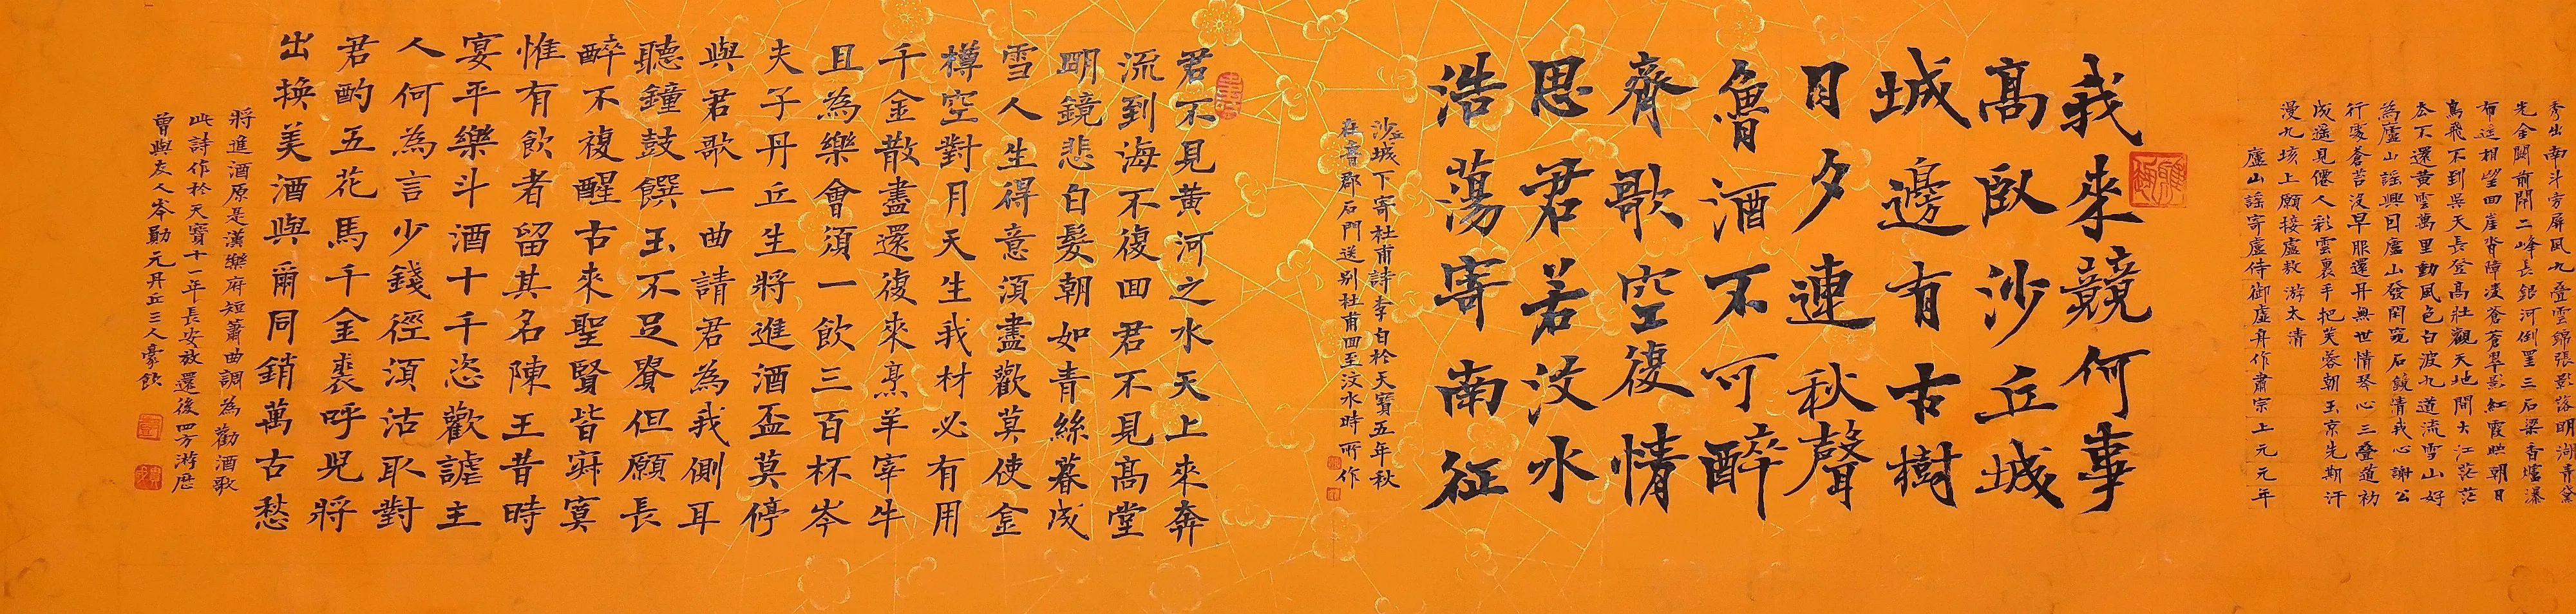 秀出南斗旁屏風九疊雲錦張影落明湖青黛
光金闕前開二峰長銀河倒罣三石梁香爐瀑
布遥相望回崖沓障凌蒼蒼翠影紅霞映朝日
鳥飛不到吳天長登高壯觀天地間大江茫茫
去不還黃雲萬里動風色白波九道流雪山好
為廬山謡興因廬山發閑窺石鏡清我心謝公
行處蒼苔沒早服還丹無世情琴心三疊道初
成遥見僊人彩雲裏手把芙蓉朝玉京先期汗
漫九垓上願接盧敖游太清
廬山謡寄盧侍御虛舟作肅宗上元元年
我來竟何事
高臥沙丘城
城邊有古樹
日夕連秋聲
魯酒不可醉
齊歌空復情
思君若汶水
浩蕩寄南征
沙丘城下寄杜甫詩李白於天寶五年秋
在魯郡石門送別杜甫回至汶水時所作
君不見黃河之水天上來奔
流到海不復回君不見高堂
明鏡悲白髮朝如青絲暮成
雪人生得意須盡歡莫使金
樽空對月天生我材必有用
千金散盡還復來烹羊宰牛
且為樂會須一飲三百杯岑
夫子丹丘生將進酒盃莫停
與君歌一曲請君為我側耳
聽鐘鼓饌玉不足貴但願長
醉不複醒古來聖賢皆寂寞
惟有飲者留其名陳王昔時
宴平樂斗酒十千恣歡謔主
人何為言少錢徑須沽取對
君酌五花馬千金裘呼兒將
出換美酒與爾同銷萬古愁
將進酒原是漢樂府短簫曲調為勸酒歌
此詩作於天寶十一年長安放還後四方游歷
曾與友人岑勛元丹丘三人豪飲